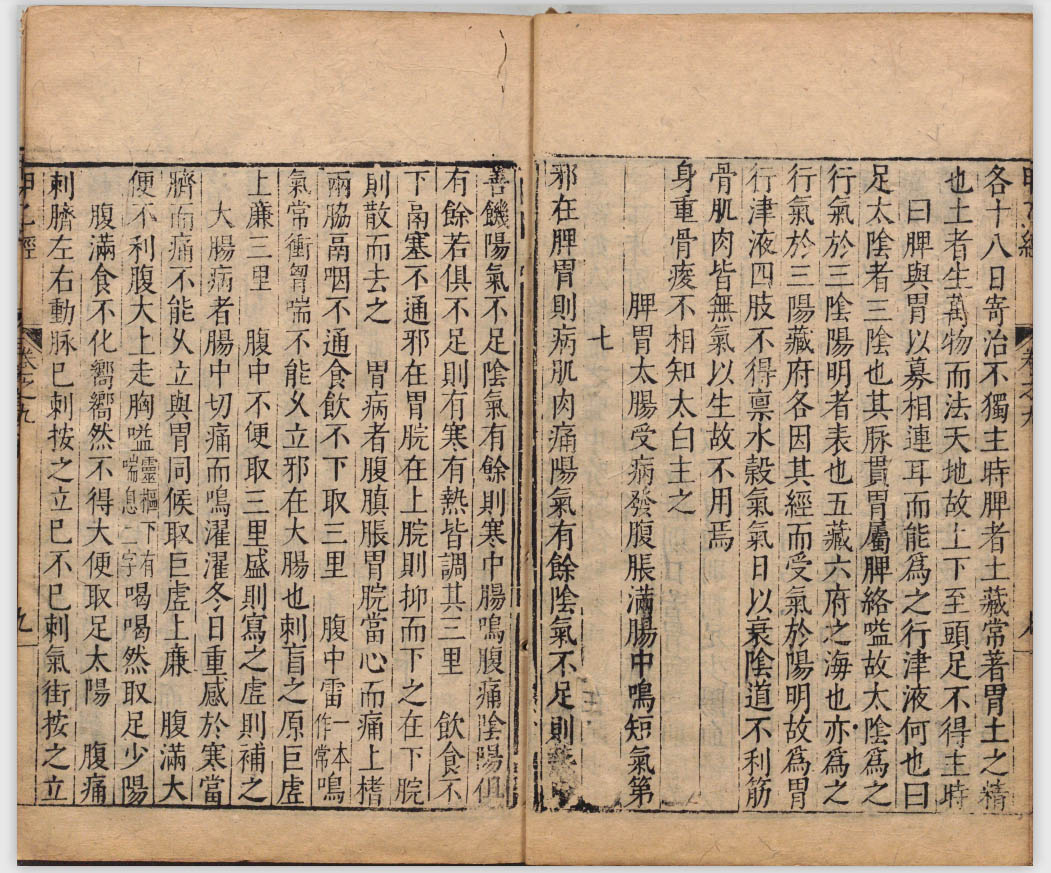 各十八日寄治不獨主時脾者土藏常著胃土之精
也土者生萬物而法天地故上下至頭足不得主時
曰脾與胃以募相連耳而能爲之行津液何也曰
足太陰者三陰也其脉貫胃屬脾絡嗌故太陰爲之
行氣於三陰陽明者表也五藏六府之海也亦爲之
行氣於三陽藏府各因其經而受氣於陽明故爲胃
行津液四肢不得禀水穀氣氣日以衰陰道不利筋
骨肌肉皆無氣以生故不用焉
身重骨痠不相知太白主之
脾胃太腸受病發腹脹滿腸中鳴短氣第
七
邪在脾胃則病肌肉痛陽氣有餘陰氣不足則
善饑陽氣不足陰氣有餘則寒中腸鳴腹痛陰陽俱
有餘若俱不足則有寒有熱皆調其三里　飲食不
下鬲塞不通邪在胃脘在上脘則抑而下之在下脘
則散而去之　胃病者腹䐜脹胃脘當心而痛上榰
兩脇鬲咽不通食飲不下取三里　腹中雷一本作常鳴
氣常衝胷喘不能久立邪在大腸也刺肓之原巨虚
上廉三里　腹中不便取三里盛則寫之虚則補之
大腸病者腸中切痛而鳴濯濯冬日重感於寒當
臍而痛不能久立與胃同候取巨虚上廉　腹滿大
便不利腹大上走胸嗌靈樞下有喘息二字喝喝然取足少陽
腹滿食不化嚮嚮然不得大便取足太陽　腹痛
刺臍左右動脉已刺按之立已不已刺氣街按之立
甲乙經
卷之九
九